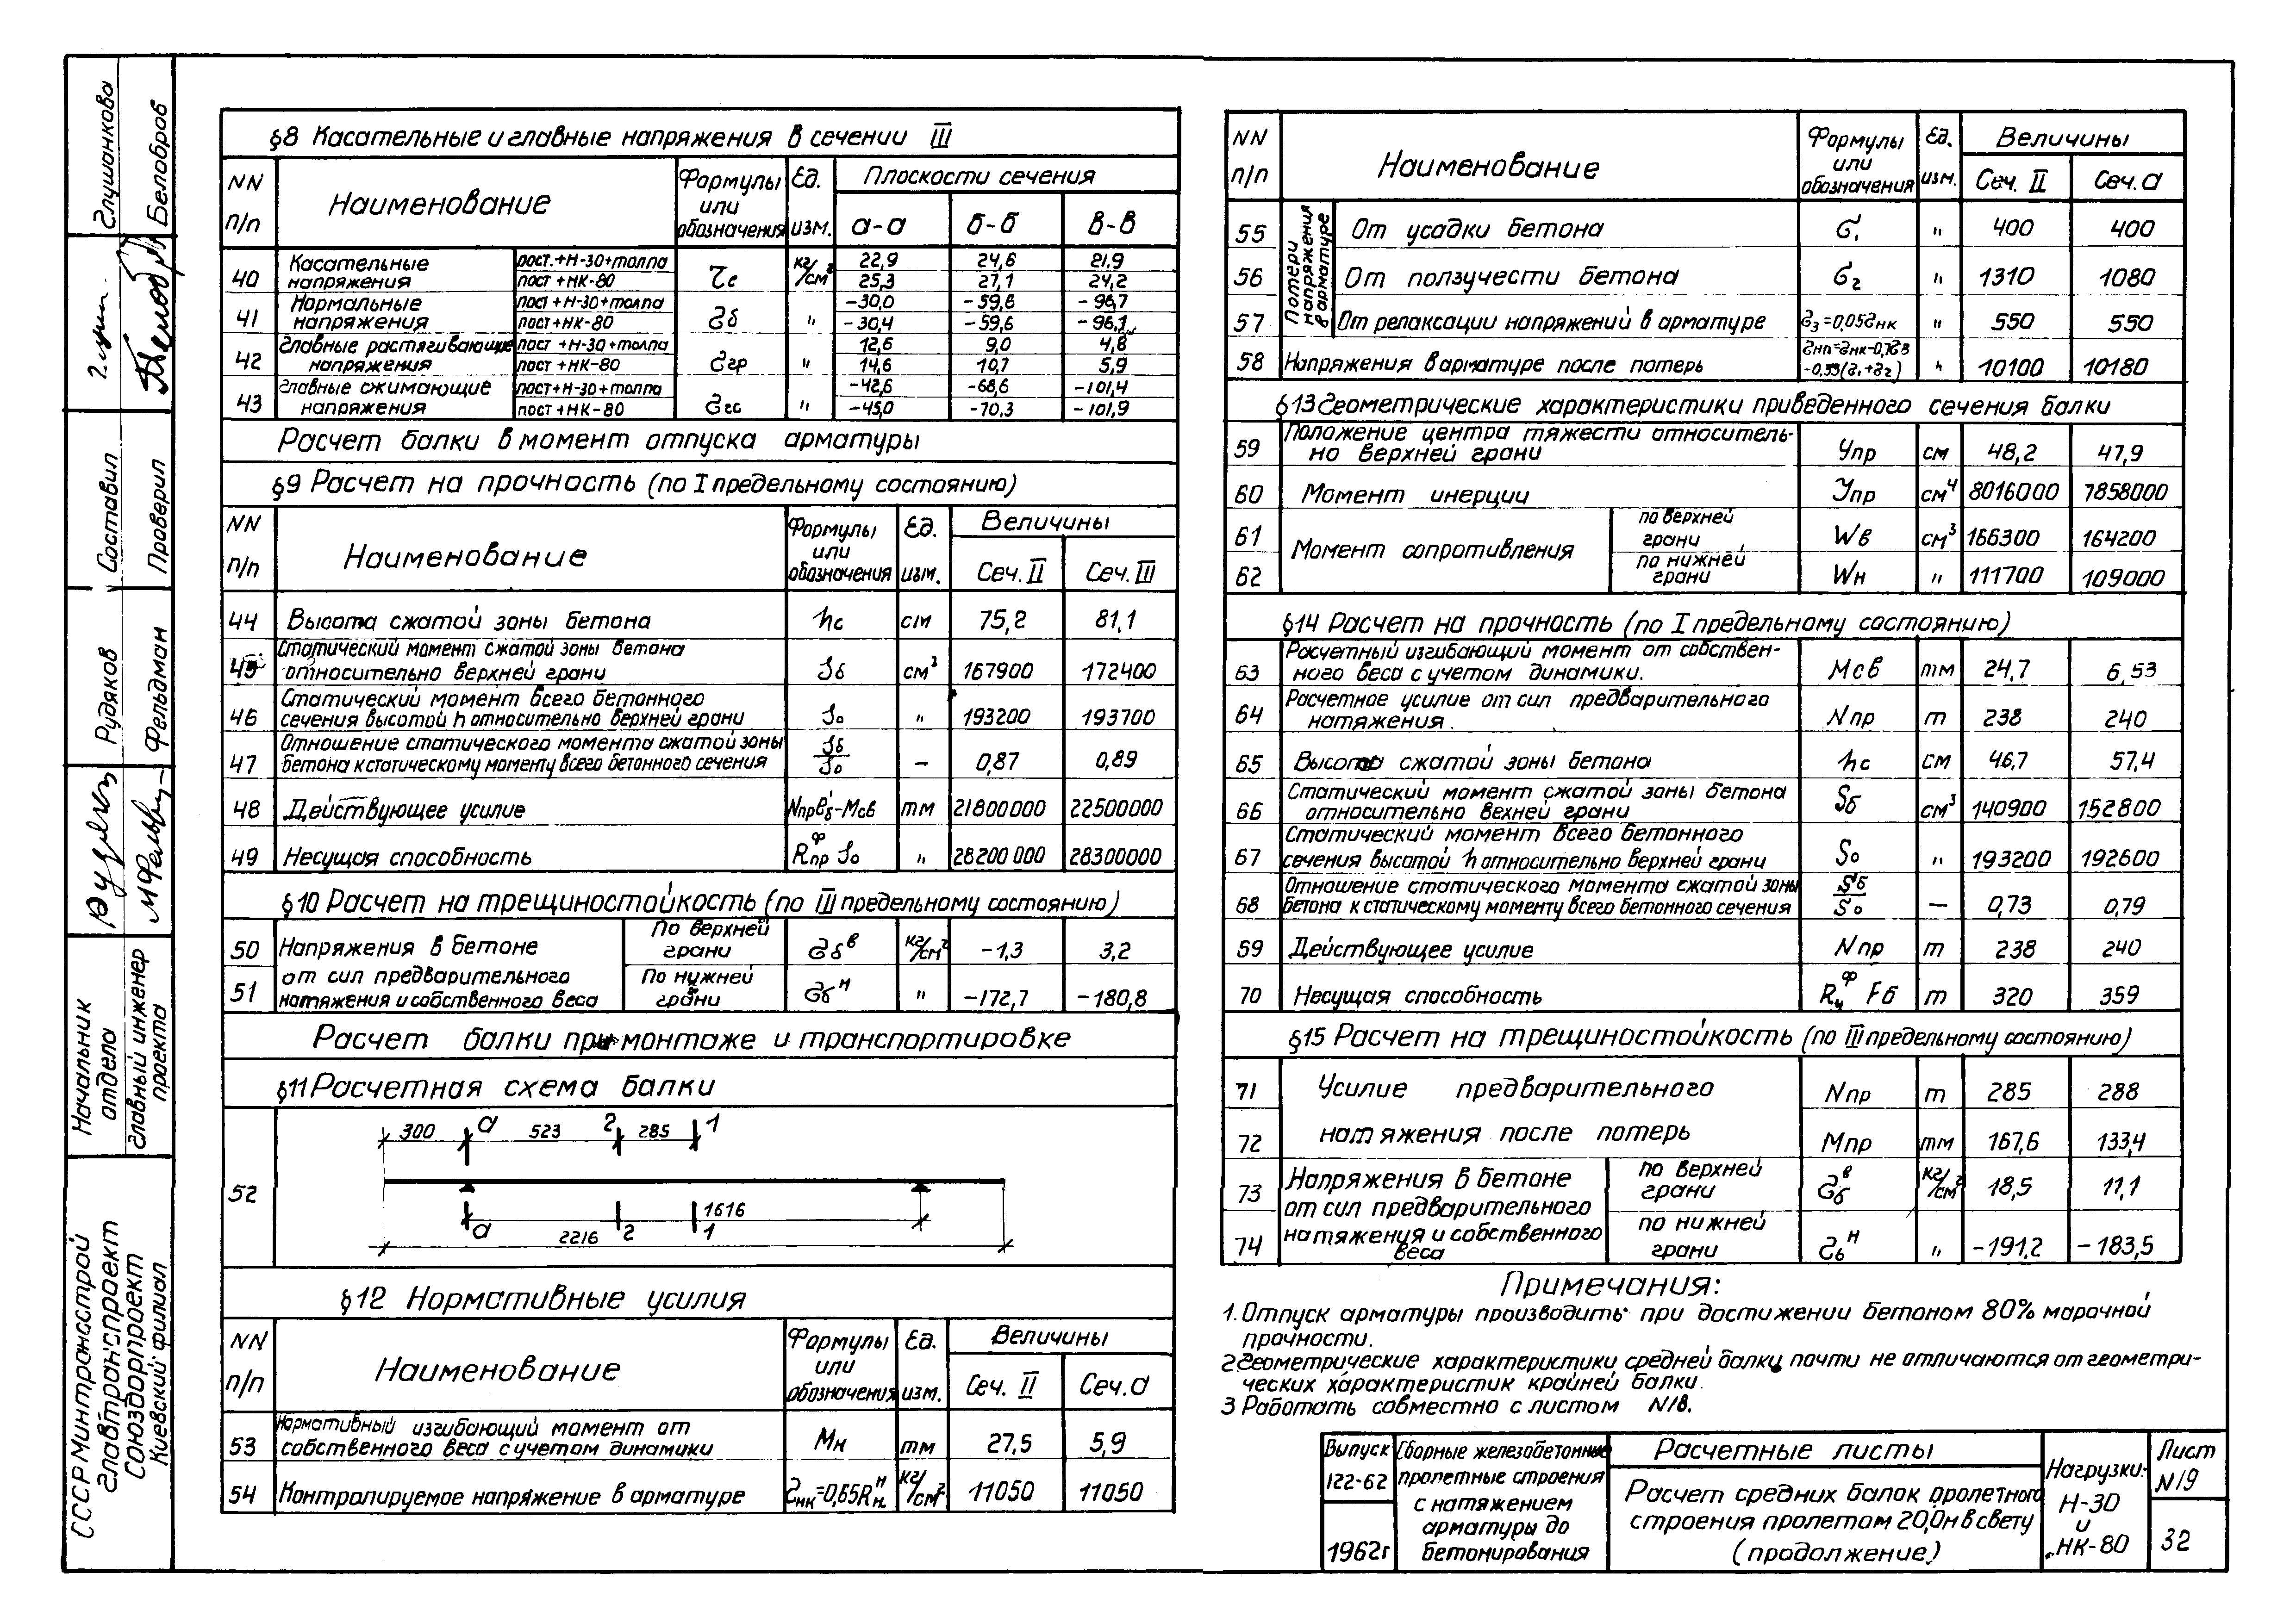 §8 Касательные и главные напряжения в сечении III
NN п/п Наименование Формулы или обозначения Ед. изм. Плоскости сечения
а-а б-б в-в
40 Касательные напряжения рост.+Н-30+толпа τс кг/см² 22,9 24,6 21,9
пост+НК-80 25,3 27,1 24,2
41 Нормальные напряжения пост+Н-30+толпа σб " -30,0 -59,6 -96,7
пост+НК-80 -30,4 -59,6 -96,1
42 Главные растягивающие напряжения пост+Н-30+толпа σгр " 12,6 9,0 4,8
пост+НК-80 14,6 10,7 5,9
43 Главные сжимающие напряжения пост+Н-30+толпа σгс " -42,6 -68,6 -101,4
пост+НК-80 -45,0 -70,3 -101,9
Расчет балки в момент отпуска арматуры
§9 Расчет на прочность (по I предельному состоянию)
NN п/п Наименование Формулы или обозначения Ед. изм. Величины
Сеч. II Сеч. III
44 Высота сжатой зоны бетона hс см 75,2 81,1
45 Статический момент сжатой зоны бетона относительно верхней грани Sб см³ 167900 172400
46 Статический момент всего бетонного сечения высотой h относительно верхней грани Sо " 193200 193700
47 Отношение статического момента сжатой зоны бетона к статическому моменту всего бетонного сечения Sб/Sо — 0,87 0,89
48 Действующее усилие Nпреб'-Мсв тм 21800000 22500000
49 Несущая способность Rпрф Sо " 28200000 28300000
§10 Расчет на трещиностойкость (по III предельному состоянию)
50 Напряжения в бетоне По верхней грани σбв кг/см² -1,3 3,2
51 от сил предварительного натяжения и собственного веса По нижней грани σбн " -172,7 -180,8
Расчет балки при монтаже и транспортировке
§11 Расчетная схема балки
52
300 а 523 2 285 1
а 2 1616 1
2216
§12 Нормативные усилия
NN п/п Наименование Формулы или обозначения Ед. изм. Величины
Сеч. II Сеч. а
53 Нормативный изгибающий момент от собственного веса с учетом динамики Мн тм 27,5 5,9
54 Контролируемое напряжение в арматуре σнк=0,65Rнн кг/см² 11050 11050
NN п/п Наименование Формулы или обозначения Ед. изм. Величины
Сеч. II Сеч. а
Потери напряжения в арматуре
55 От усадки бетона σ1 " 400 400
56 От ползучести бетона σ2 " 1310 1080
57 От релаксации напряжений в арматуре σ3=0,05σнк " 550 550
58 Напряжения в арматуре после потерь " 10100 10180
§13 Геометрические характеристики приведенного сечения балки
59 Положение центра тяжести относительно верхней грани Упр см 48,2 47,9
60 Момент инерции Jпр см⁴ 8016000 7858000
61 Момент сопротивления по верхней грани Wв см³ 166300 164200
62 по нижней грани Wн " 111700 109000
§14 Расчет на прочность (по I предельному состоянию)
63 Расчетный изгибающий момент от собственного веса с учетом динамики. Мсв тм 24,7 6,53
64 Расчетное усилие от сил предварительного натяжения. Nпр т 238 240
65 Высота сжатой зоны бетона hс см 46,7 57,4
66 Статический момент сжатой зоны бетона относительно вехней грани Sб см³ 140900 152800
67 Статический момент всего бетонного сечения высотой h относительно верхней грани Sо " 193200 192600
68 Отношение статического момента сжатой зоны бетона к статическому моменту всего бетонного сечения Sб/Sо — 0,73 0,79
69 Действующее усилие Nпр т 238 240
70 Несущая способность Rиф Fб т 320 359
§15 Расчет на трещиностойкость (по III предельному состоянию)
71 Усилие предварительного Nпр т 285 288
72 натяжения после потерь Мпр тм 167,6 133,4
73 Напряжения в бетоне от сил предварительного по верхней грани σбв кг/см² 18,5 11,1
74 натяжения и собственного веса по нижней грани σбн " -191,2 -183,5
Примечания:
1. Отпуск арматуры производить при достижении бетоном 80% марочной
прочности.
2. Геометрические характеристики средней балки почти не отличаются от геометри-
ческих характеристик крайней балки.
3 Работать совместно с листом N18.
Выпуск 122-62
1962г
Сборные железобетонные
пролетные строения
с натяжением
арматуры до
бетонирования
Расчетные листы
Расчет средних балок пролетного
строения пролетом 20,0м в свету
(продолжение)
Нагрузки:
Н-30
и
НК-80
Лист
N19
32
СССР Минтрансстрой
Главтранспроект
Союздорпроект
Киевский филиал
Начальник отдела Рудяков
Главный инженер проекта Фельдман
Составил Глушанкова
Проверил Белобров